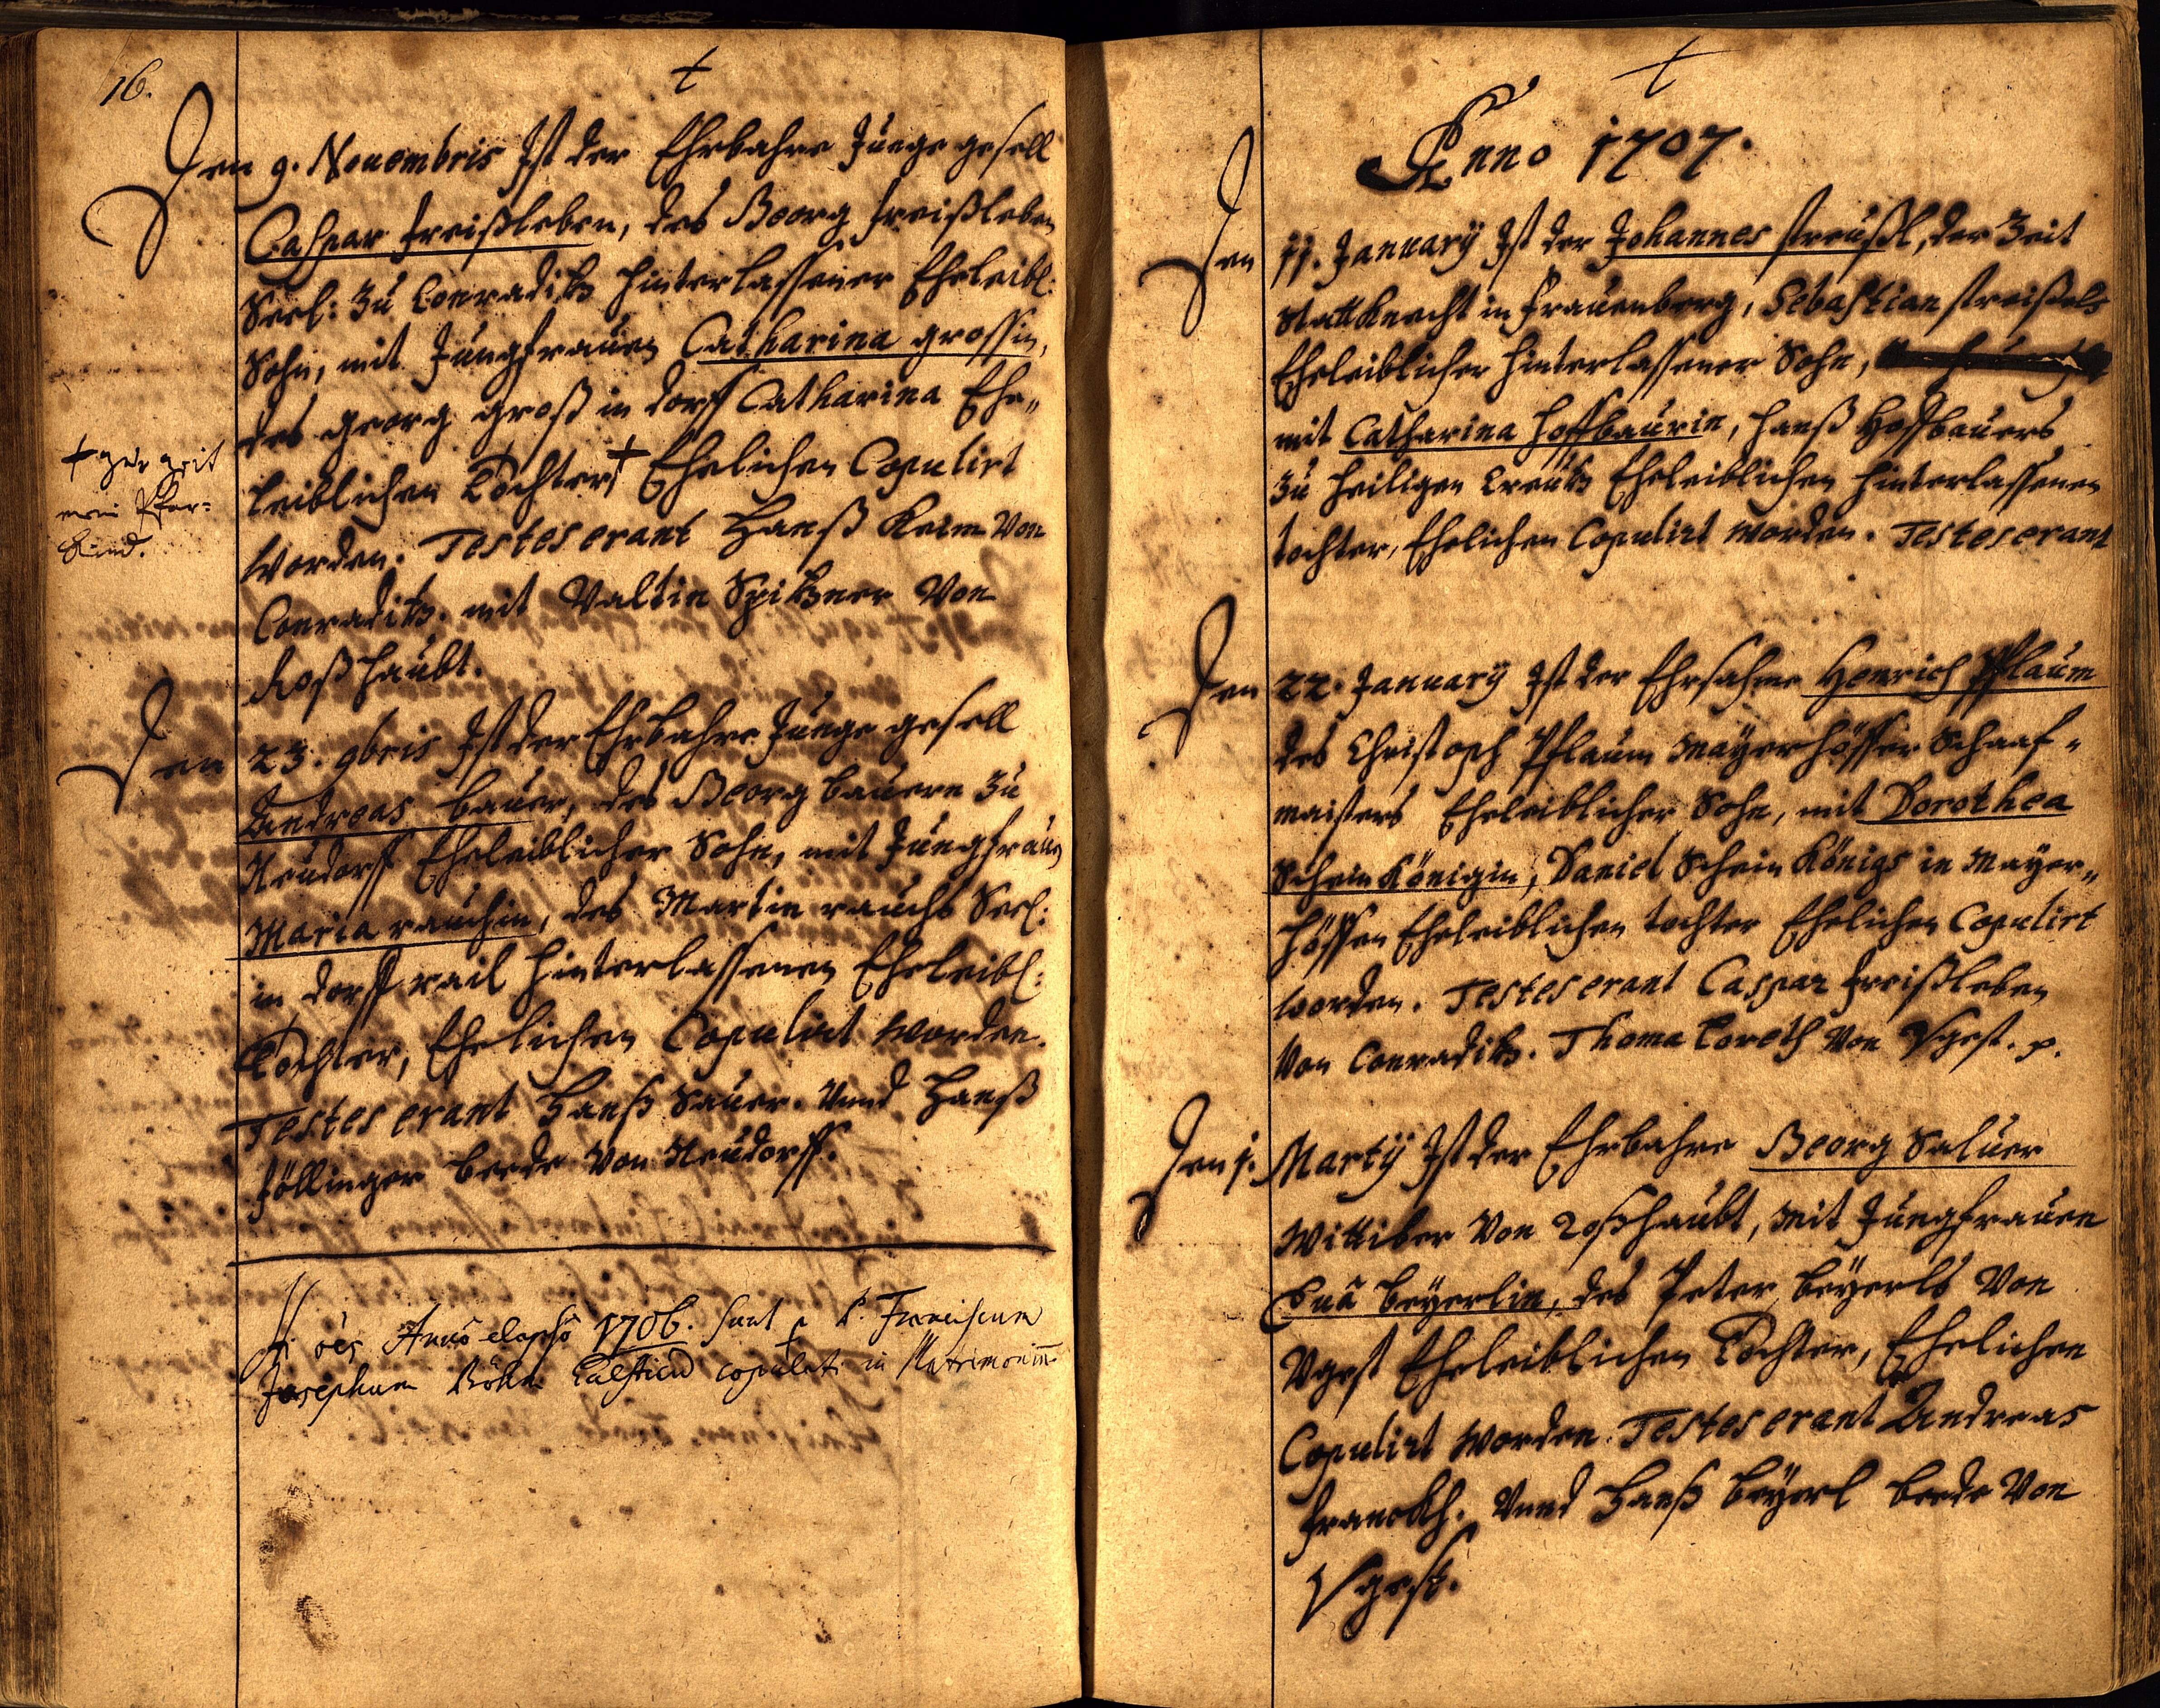 16.
†
Den 9. Nouembris Ist der Ehrbahre Junge gesell
Caspar freißleben, des Georg freißleben
Seel: Zu Conraditz hinterlassener Eheleibl:
Sohn, mit Jungfrauen Catharina grossin,
des georg groß in dorff Catharina Ehe„
leiblichen Tochter † Ehelichen Copulirt
† zur zeit
mein Pfar=
Kind.
worden. Testes erant Hanß Keim Von
Conraditz. mit Valtin Spitzner Von
Roßhaubt.
Den 23. 9bris Ist der Ehrbahre Junge gesell
Andreas bauer, des Georg bauern Zu
Neudorff Eheleiblicher Sohn, mit Jungfrauen
Maria rauchin, des Martin rauchs Seel:
in dorff rail hinterlassenen Eheleibl:
Tochter, Ehelichen Copulirt worden.
Testes erant Hanß Sauer. Vnnd Hanß
föllinger beede Von Neudorff.
oes Anno elapso 1706. sunt p P. Franciscum
Josephum Böhm copulati in Matrimoniu
†
Anno 1707.
Den 11. January Ist der Johannes streußl, der Zeit
Stattknecht in frauenberg, Sebastian streißels
Eheleiblicher hinterlassener Sohn,
mit Catharina hoffbaurin, hanß Hoffbauers
Zu heiligen Creutz Eheleiblichen hinterlassenen
tochter, Ehelichen Copulirt worden. Testes erant
Den 22. January Ist der Ehrsahme Henrich Pflaum
des Christoph Pflaum Mayerhöffer Schaaf„
maisters Eheleiblicher Sohn, mit Dorothea
Schein Königin, Daniel Schein Königs in Mayer„
höffen Eheleiblichen tochter Ehelichen Copulirt
worden. Testes erant Caspar freißleben
Von Conraditz. Thoma Loreth Von Vgest. p.
Den 1. Martij Ist der Ehrbahre Georg Saluer
Wittiber Von Roßhaubt, mit Jungfrauen
Euâ beyerlin, des Peter beyerls Von
Vgest Eheleiblichen Tochter, Ehelichen
Copulirt worden. Testes erant Andreas
franckh. Vnnd Hanß beyerl beede Von
Vgest.